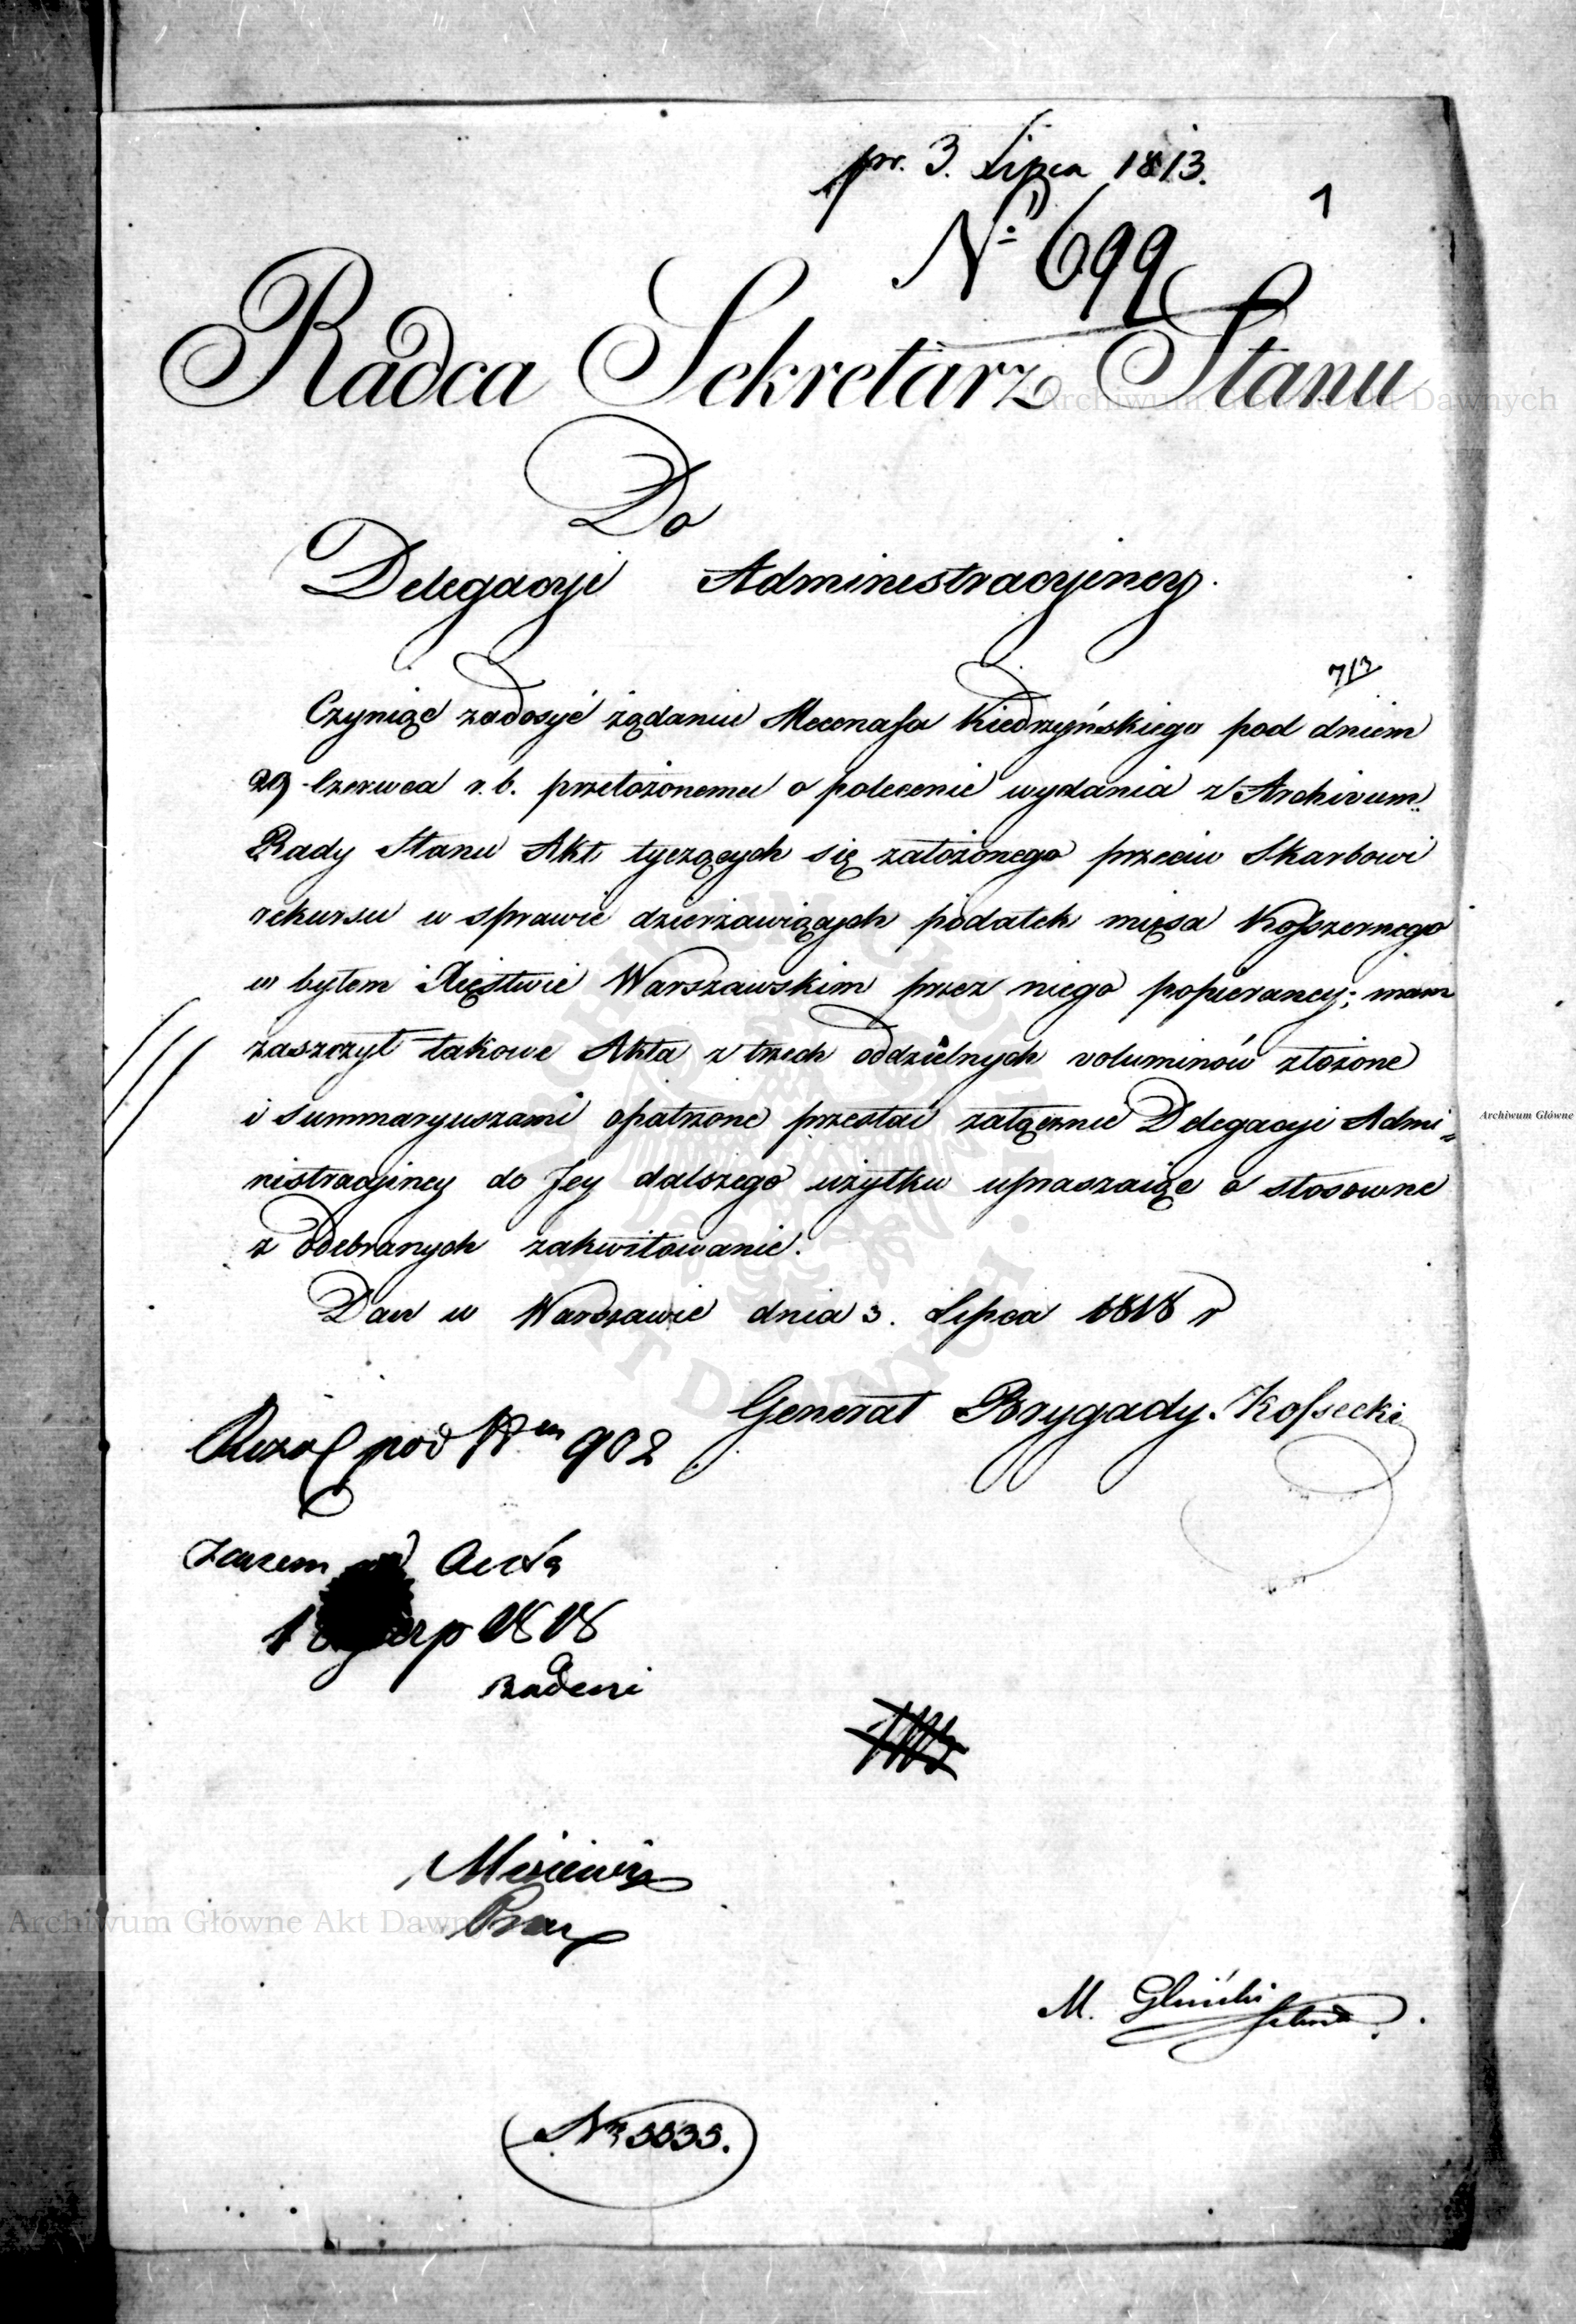 pr. 3. Lipca 1813.
1
No 699
Radca Sekretarz Stanu
Do
Delegacyi Administracyiney.
713
Czyniąc zadosyć żądaniu Mecenasa Kiedrzyńskiego pod dniem
29 Czerwca r. b. przełożonemu o polecenie wydania z Archivum
Rady Stanu Akt tyczących się założonego przeciw Skarbowi
rekursu w sprawie dzierżawiących podatek mięsa Koszernego
w byłem Xięstwie Warszawskim przez niego popieraney; mam
zaszczyt takowe Akta z trzech oddzielnych voluminów złożone
i Summaryuszami opatrzone przesłać załącznie Delegacyi Admi=
nistracyiney do Jey dalszego użytku upraszaiąc o stosowne
z odebranych zakwitowanie.
Dan w Warszawie dnia 3. Lipca 1818 r
Generał Brygady. Kossecki
pod Nem 902
Zarazem Acta
18 Sierp 1818
Badeni
M. Gliński
Nr 5535.
Archiwum Główne Akt Dawnych
Archiwum Główne
Archiwum Główne Akt Dawnych